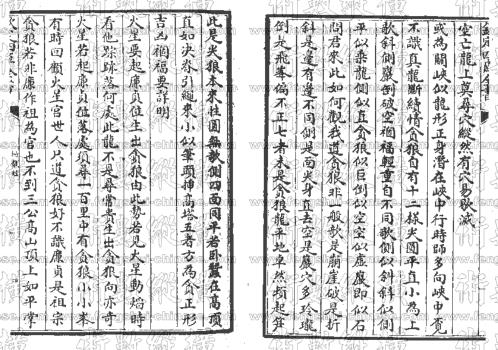 空亡龍上莫尋穴縱然有穴易歇滅
或為關峽似龍形正身潛在峽中行時師多向峽中覓
不識真龍斷續情貪狼自有十二樣尖圓平直小為上
欹斜側巖倒破空禍福輕重自不同欹似斜側似斜側
平似 龍側似直貪狼似巨倒似空空似虛巖即似石
問君來此如何觀我道貪狼非一般欹是崩崖破是折
斜是邊有邊不同側是面尖身直去空是巖穴多玲瓏
倒是飛峯偏不正七者未是貪狼龍平地卓然頓起笋
此是尖狼本來性圓無欹側四面同平若臥蠶在高頂
直如決脊引繩來小似筆頭揷高塔五者方為貪正形
吉凶禍福要詳明
火星要起廉貞位生出貪狼由此勢若見火星動焰時
看他踪跡落何處此龍不是尋常貴生出貪狼向亦奇
火星若起廉貞位落處須尋一百里中有貪狼小小峯
有時回顧火星宮世人只道貪狼好不識廉貞是祖宗
貪狼若非廉作祖為官也不到三公高山頂上如平掌